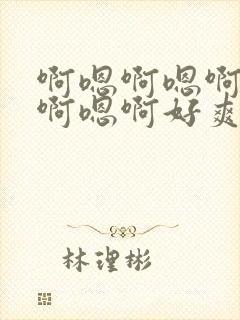 啊嗯啊嗯啊
啊嗯啊好爽
林理彬